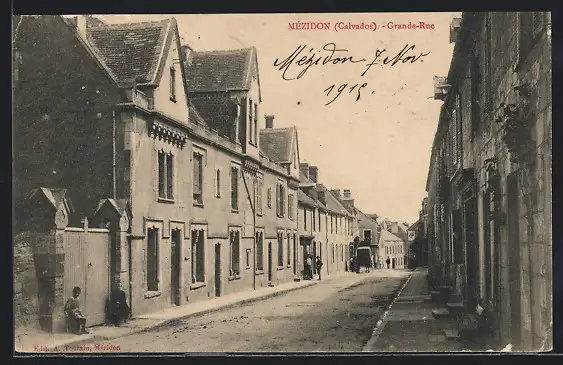 MÉZIDON (Calvados). - Grande-Rue
Mézidon 7 Nov.
1915
Edit. A. Toutain, Mézidon